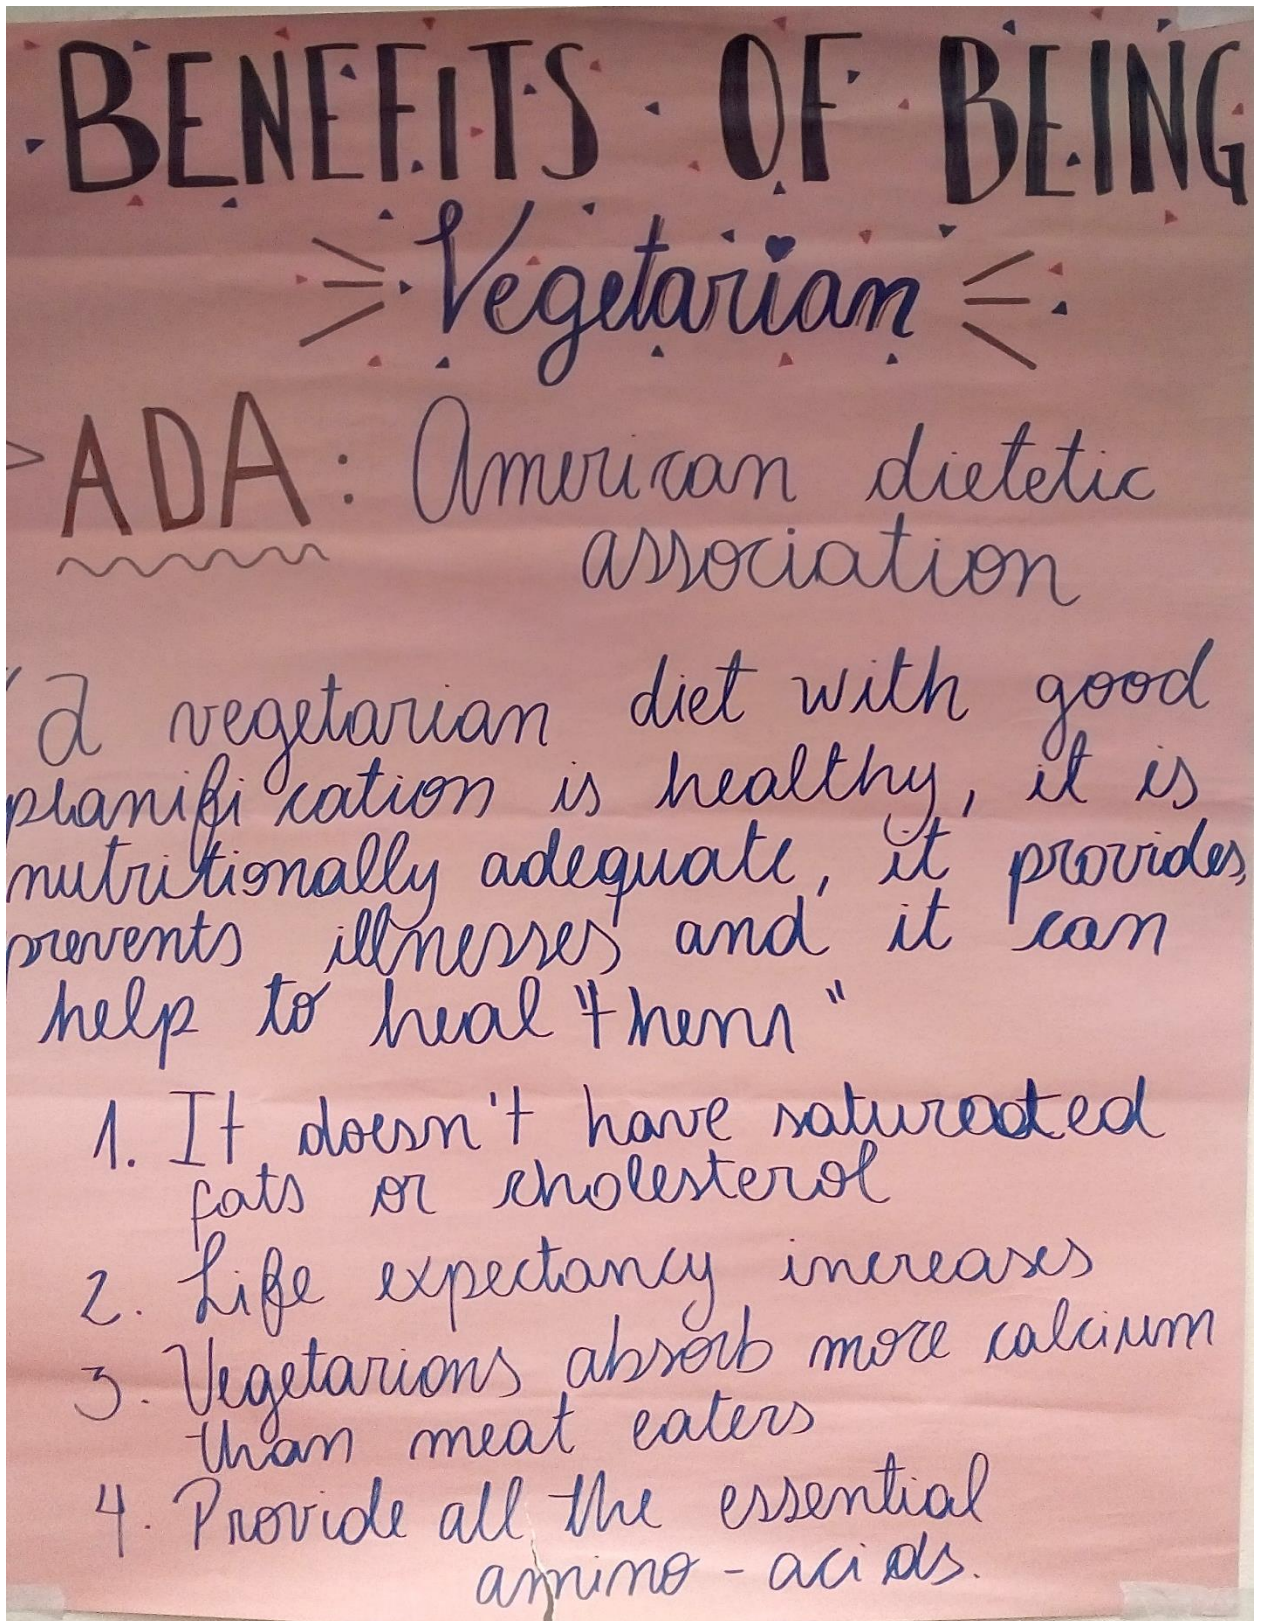 BENEFITS OF BEING
Vegetarian
> ADA : American dietetic
association
"A vegetarian diet with good
planification is healthy, it is
nutritionally adequate, it provides,
prevents illnesses and it can
help to heal them"
1. It doesn't have saturated
fats or cholesterol
2. Life expectancy increases
3. Vegetarians absorb more calcium
than meat eaters
4. Provide all the essential
amino - acids.